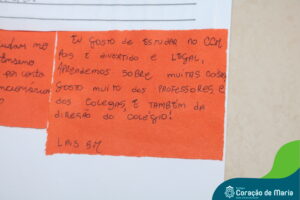 udar no
ensino
por conta
EU GOSTO DE ESTUDAR NO CCM
POIS É DIVERTIDO E LEGAL,
APRENDEMOS SOBRE MUITAS COISAS
GOSTO MUITO DOS PROFESSORES E
DOS COLEGAS, E TAMBÉM DA
DIREÇÃO DO COLÉGIO!
LAIS 8M
Coração de Maria